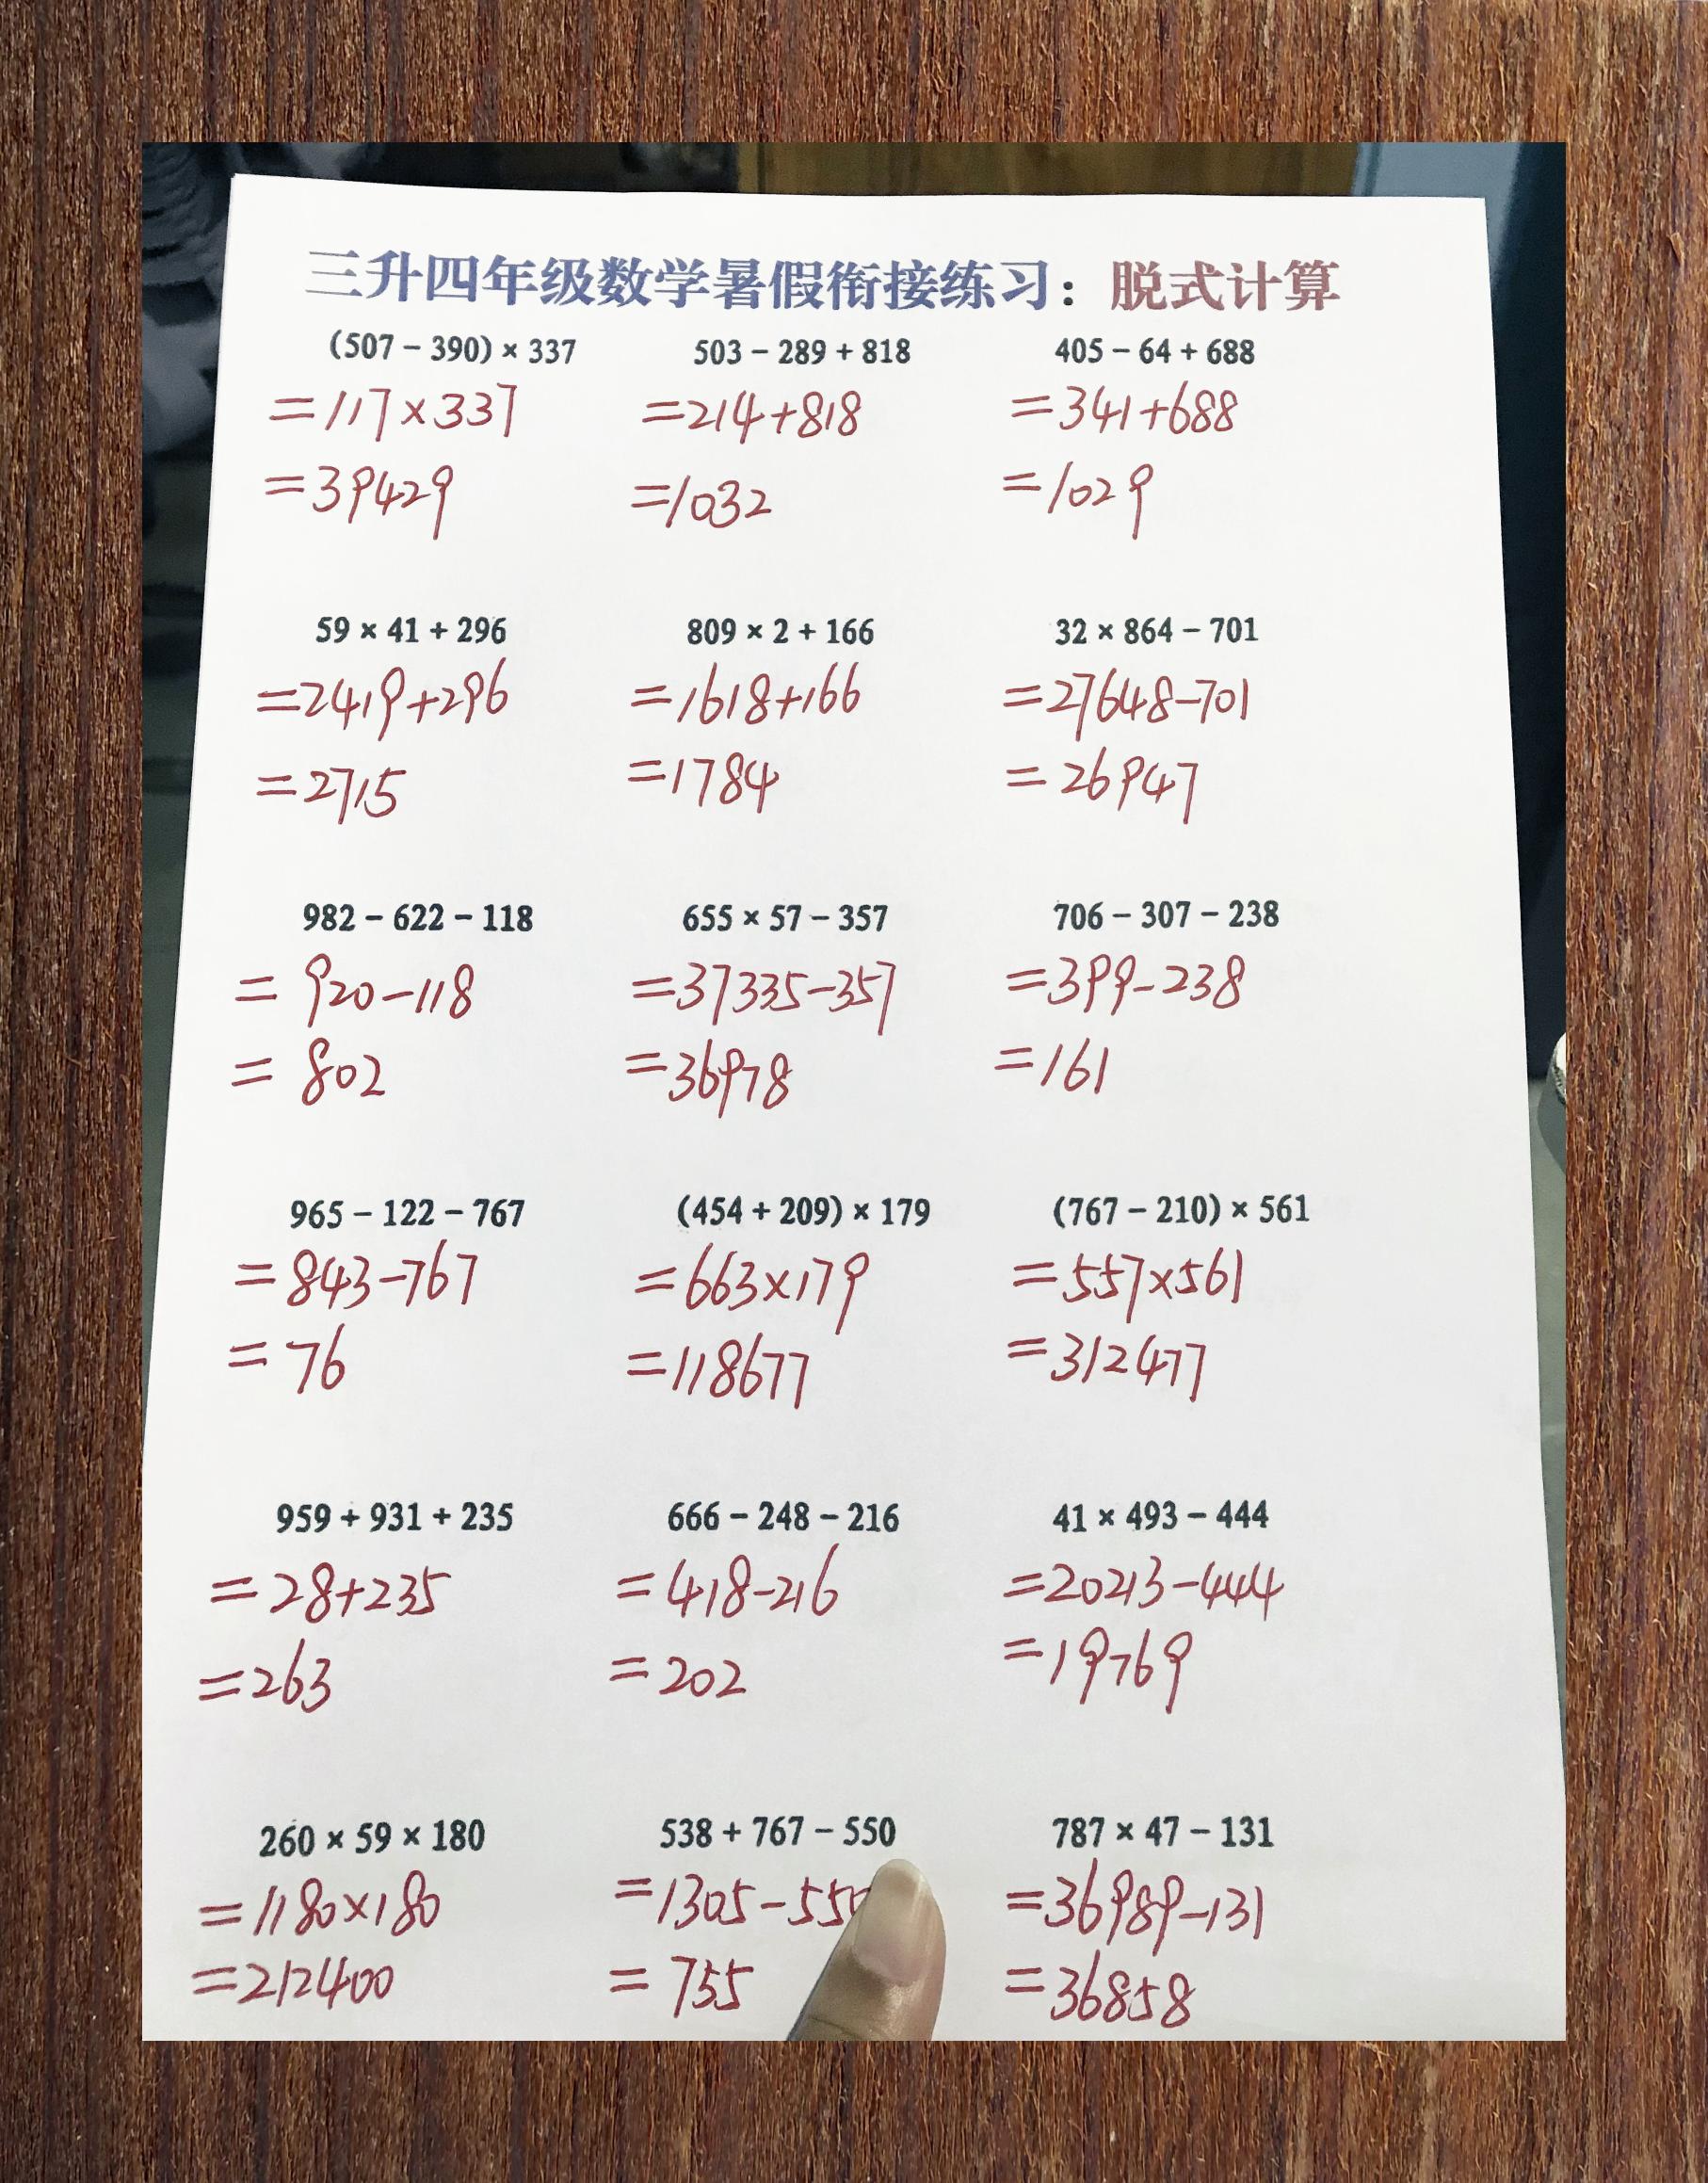 三升四年级数学暑假衔接练习：脱式计算
(507－390)×337 503－289＋818 405－64＋688
=117×337 =214+818 =341+688
=39429 =1032 =1029
59×41＋296 809×2＋166 32×864－701
=2419+296 =1618+166 =27648-701
=2715 =1784 =26947
982－622－118 655×57－357 706－307－238
=920-118 =37335-357 =399-238
=802 =36978 =161
965－122－767 (454＋209)×179 (767－210)×561
=843-767 =663×179 =557×561
=76 =118677 =312477
959＋931＋235 666－248－216 41×493－444
=28+235 =418-216 =20213-444
=263 =202 =19769
260×59×180 538＋767－550 787×47－131
=1180×180 =1305-550 =36989-131
=212400 =755 =36858